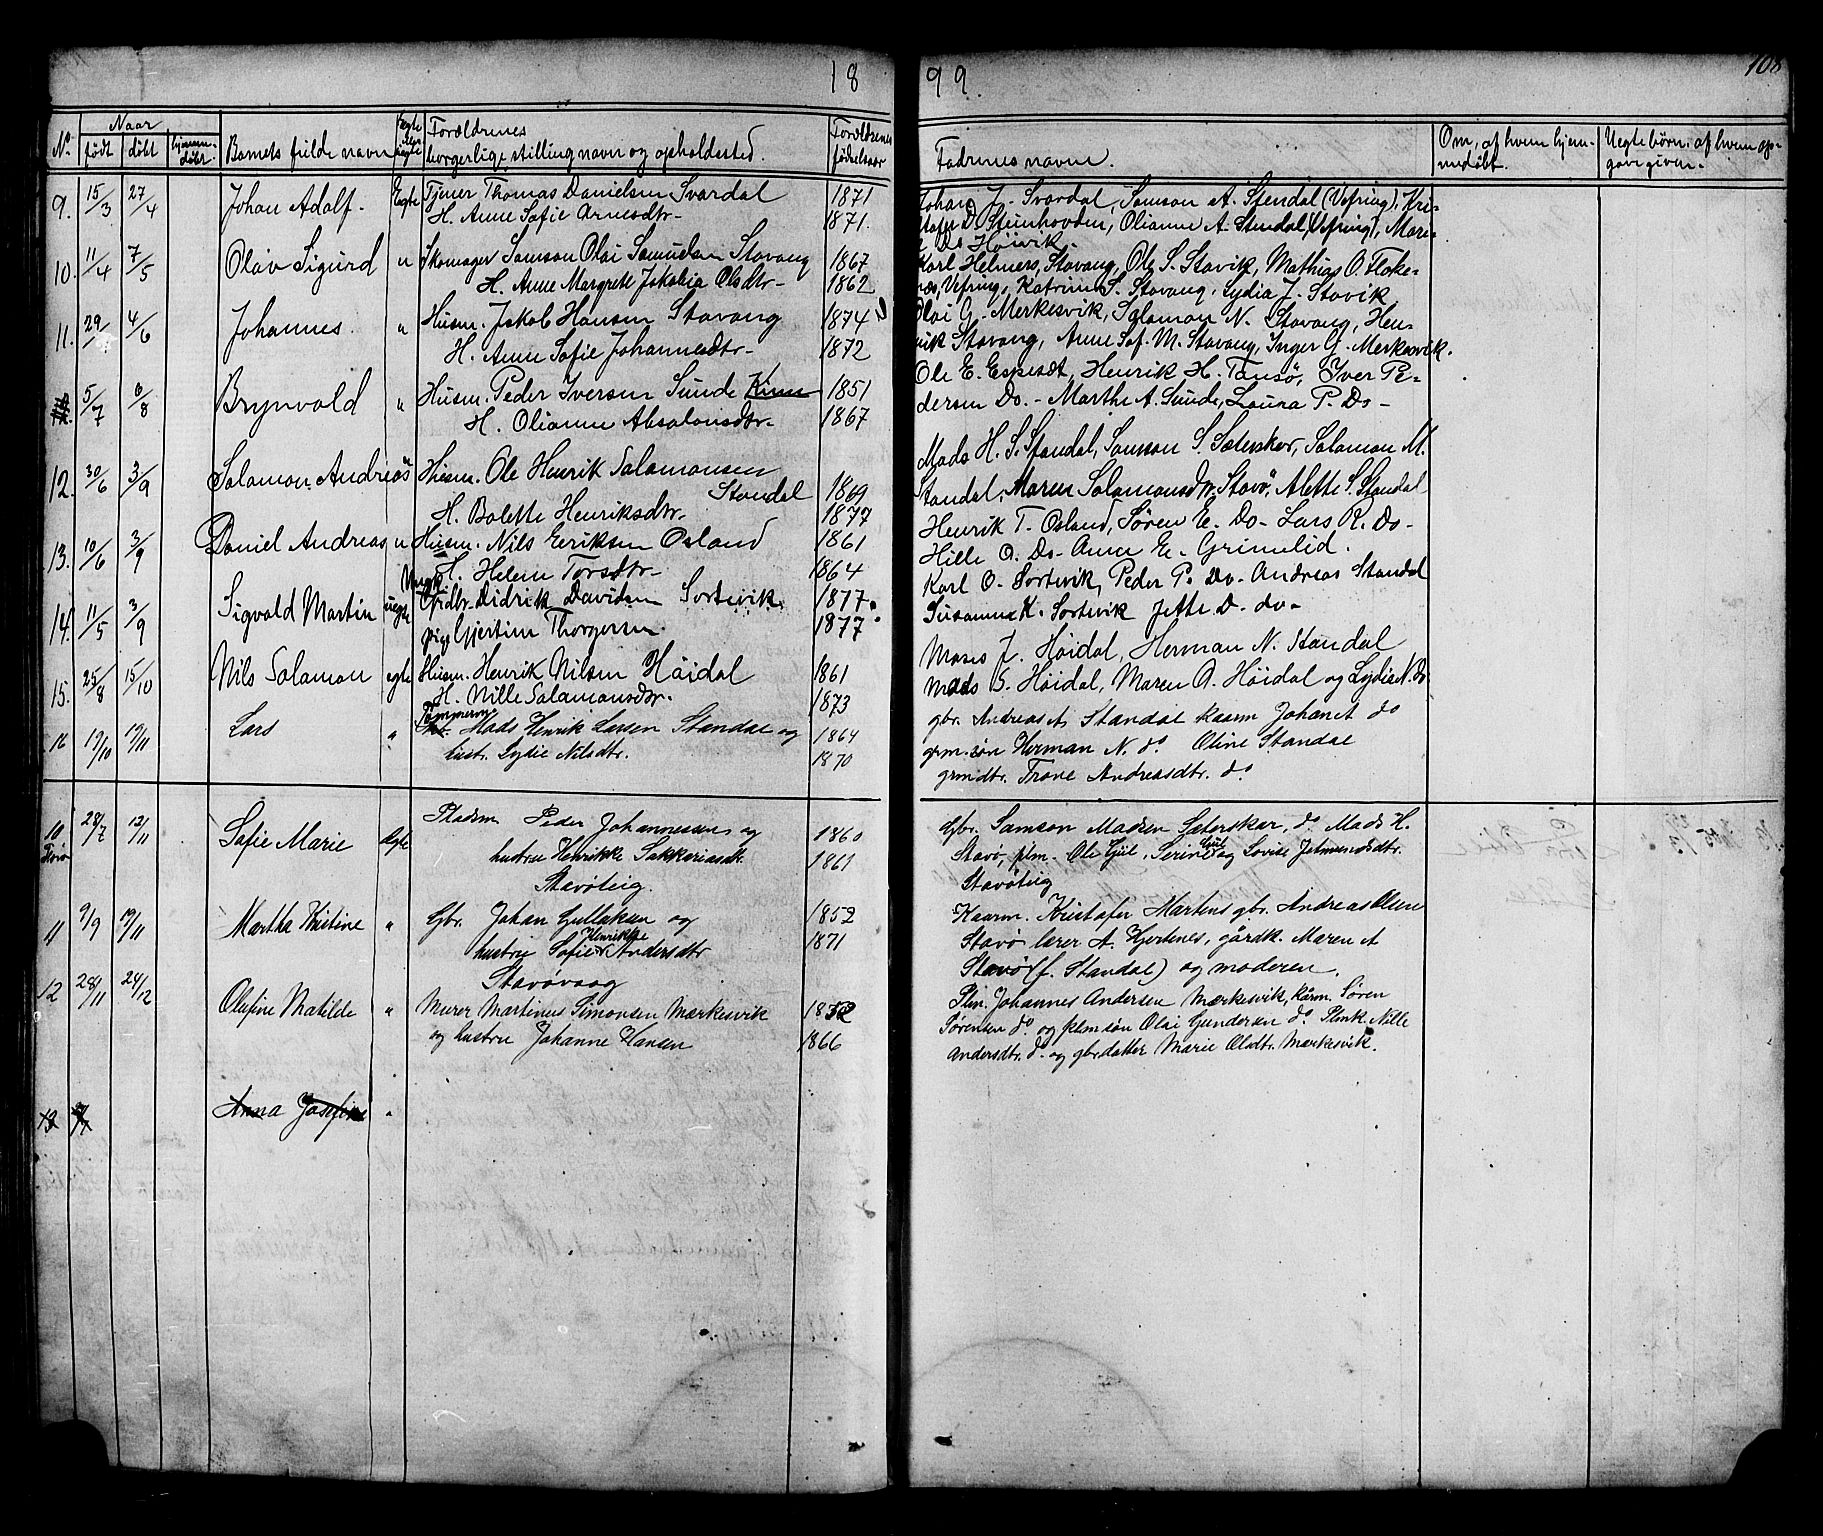 18 99. 108
No. Naar født døbt hjemmedøbt Barnets fulde navn Ægte eller uægte Forældrenes borgerlige stilling navn og opholdssted. Forældrenes fødselsaar
Fadrenes navne. Om, af hvem hjemmedøbt. Uegte børn: af hvem opgave given.
9. 15/3 27/4 Johan Adolf. Egte Tjener Thomas Danielsen Svardal 1871
H. Anne Sofie Arnesdtr. 1871.
Johan J. Svardal, Samson A. Stendal (Vefring), Kri-
stofer D. Steinhovden, Olianne A. Stendal (Vefring), Mari-
Do Høivik.
10. 11/4 7/5 Olav Sigurd " Skomager Samson Olai Samuelsen Stavang 1867
H. Anne Margrete Jakobia Olsdtr. 1862
Karl Helmers, Stavang, Ole S. Stavik, Mathias O. Floke-
næs, Vefring, Katrine S. Stavang, Lydia J. Stavik
11. 29/ 4/6 Johannes. " Husm. Jakob Hansen Stavang 1874
H. Anne Sofie Johannesdtr. 1872
Olai G. Merkesvik, Salamon N. Stavang, Hen-
rik Stavang, Anne Sof. M. Stavang, Inger G. Merkesvik.
5/7 6/8 Brynvald " Husm. Peder Iversen Sunde Kinn 1851
H. Olianne Absalonsdtr. 1867
Ole E. Espesæt, Henrik H. Tansø, Iver Pe-
dersen Do. - Marthe A. Sunde, Laura P. Do -
12. 30/6 3/9 Salamon Andreas " Husm. Ole Henrik Salamonsen
Standal 1869
H. Bolette Henriksdtr. 1877
Mads H. S. Standal, Samson S. Sæterskar, Salamon M.
Standal, Maren Salamonsdtr. Stavø, Alette S. Standal
13. 10/6 3/9 Daniel Andreas " Husm. Nils Eeriksen Osland 1861
H. Helene Torsdtr. 1864
Henrik T. Osland, Søren E. Do - Lars R. Do -
Hille O. Do - Anne E. Grimelid.
14. 11/5 3/9 Sigvald Martin uegte Ungk. Gbr. Didrik Davidsen Sortevik 1877.
pige Gjertine Thorgersen. 1877.
Karl O. Sortevik, Peder P. Do. Andreas Standal
Susanne K. Sortevik Jette D. do -
15. 25/8 15/10 Nils Salamon egte Husm. Henrik Nilsen Høidal 1861
H. Nille Salamonsdtr. 1873
Moses J. Høidal, Herman N. Standal
Mads S. Høidal, Maren A. Høidal og Lydia N. Do
16 19/10 19/11 Lars " Tømmerm. Mads Henrik Larsen Standal og 1864
hustr. Lydie Nilsdtr. 1870
gbr. Andreas A. Standal kaarm Johan A do
grm.søn Herman N. do Oline Standal
grmdtr. Trone Andreasdtr. do
10 Florø 28/7 12/11 Sofie Marie Ægte Pladsm Peder Johannessen og 1860
hustru Henrikke Sakkariasdtr 1861
Stavøteig.
Gbr. Samson Madsen Sæterskar, do Mads H.
Stavø, plm. Ole Gjil, Serine Gjil og Lovise Jetmundsdtr.
Stavøteig
11 9/9 19/11 Martha Kristine " Gbr. Johan Gullaksen og 1852
hustru Sofie Henrikke Andersdtr 1871
Stavøvaag
Kaarm. Kristofer Martens gbr. Andreas Olsen
Stavø lærer A. Hjertenes, gårdk. Maren A
Stavø (f. Standal) og moderen.
12 28/11 24/12 Olufine Matilde " Murer Martinus Simonsen Mærkesvik 1852
og hustru Johanne Hansen 1866
Plm. Johannes Andersen Mærkesvik, kårm. Søren
Sørensen do og plmsøn Olai Gundersen do Plmk. Nille
Andersdtr. do og gbrdatter Marie Olsdtr. Mærkesvik.
13 Anna Josefine "